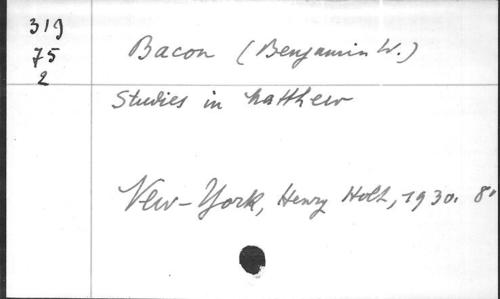 319
75
2
Bacon (Benjamin W.)
Studies in Matthew
New-York, Henry Holt, 1930. 8°